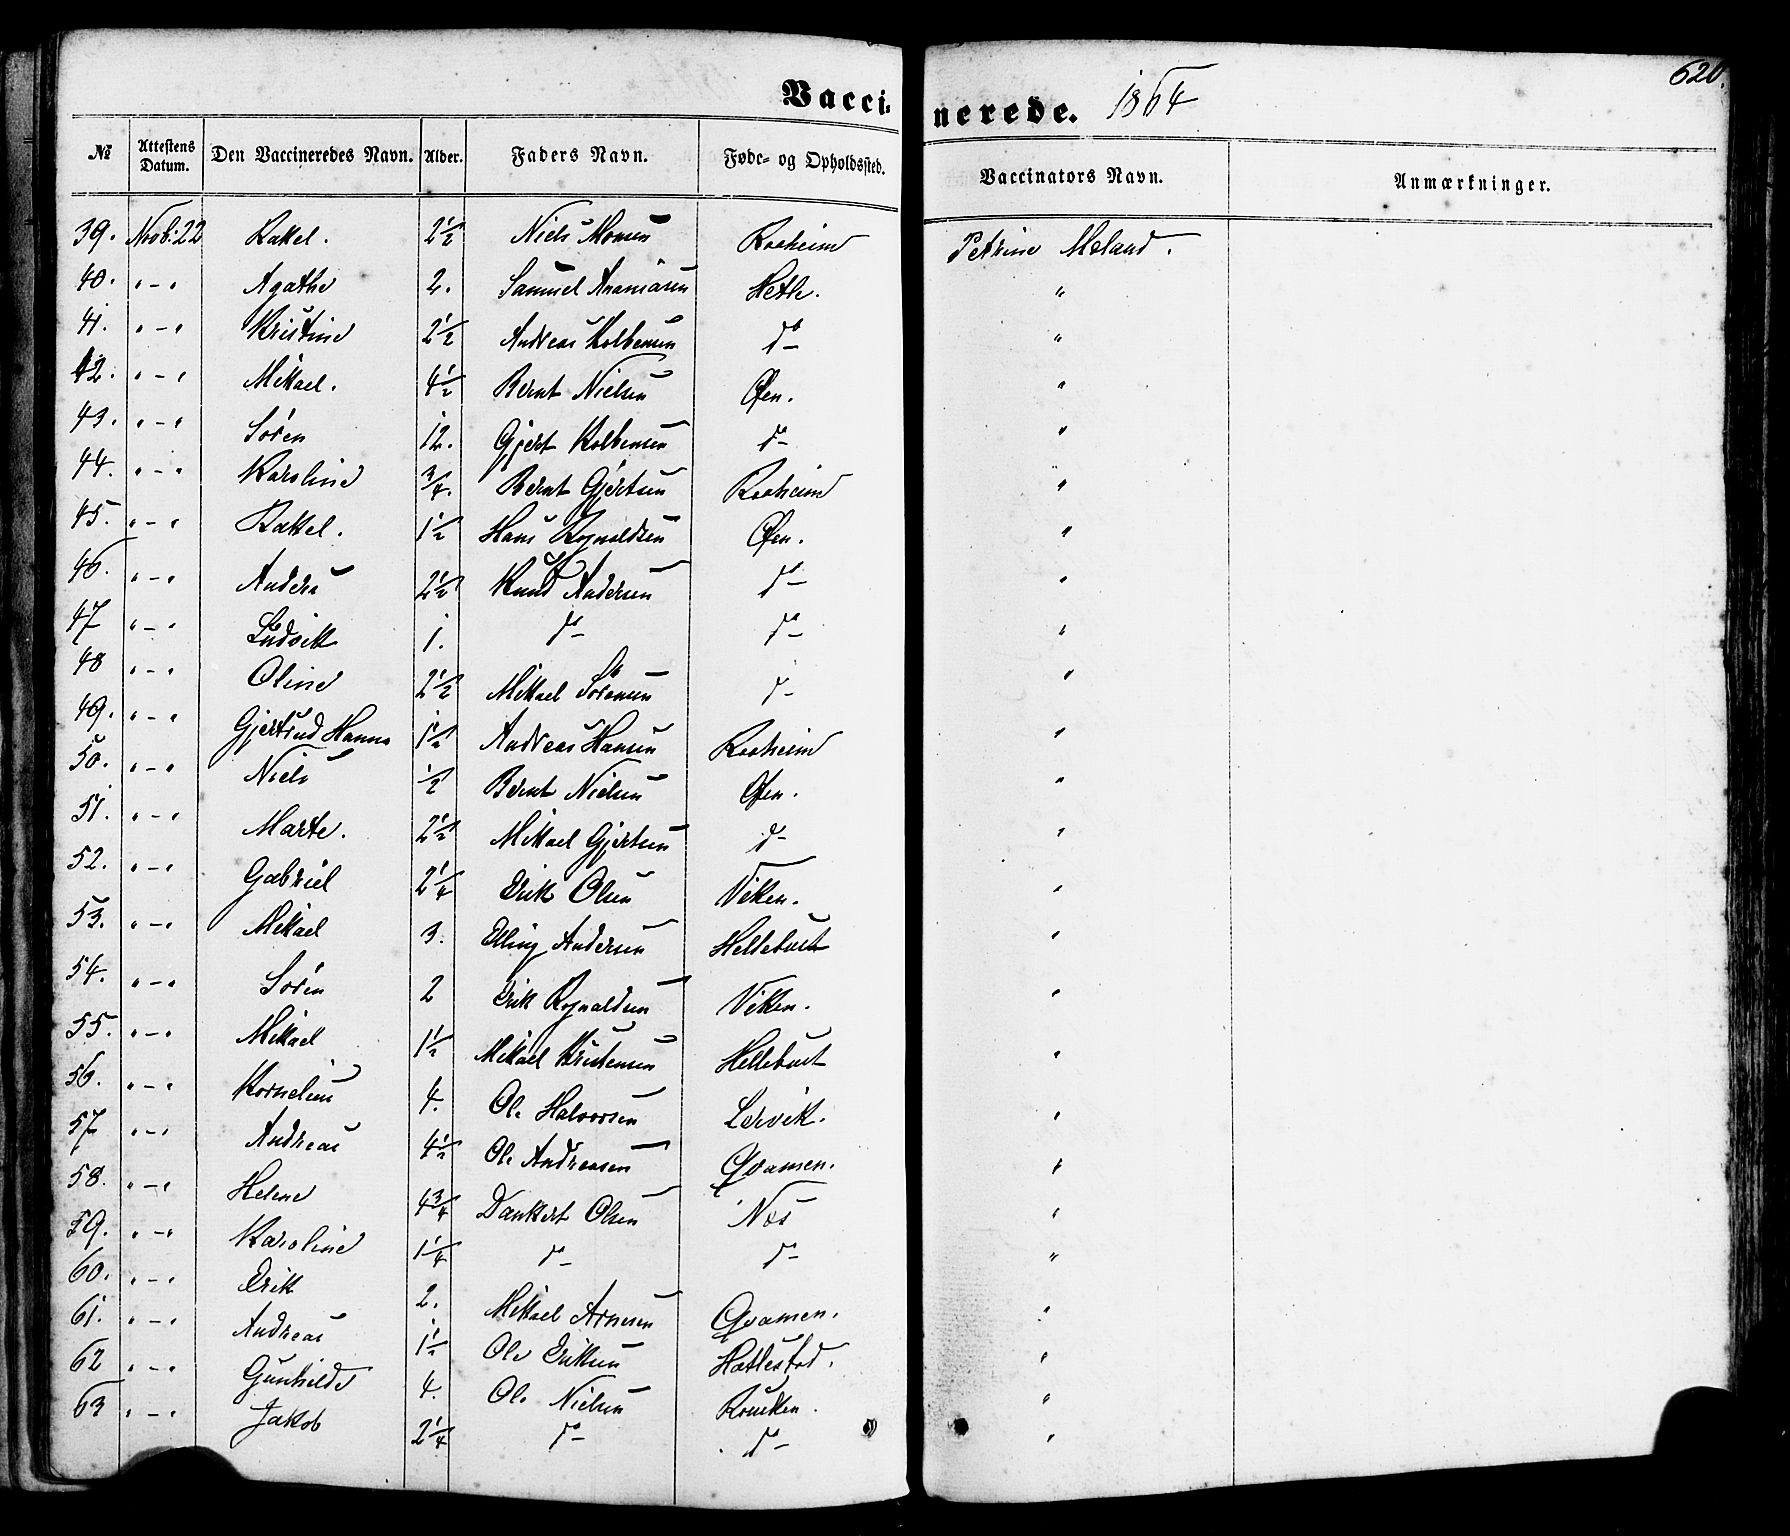 620.
Vaccinerede. 1864
№ Attestens Datum. Den Vaccineredes Navn. Alder. Faders Navn. Føde- og Opholdssted. Vaccinators Navn. Anmærkninger.
39. Novb: 22 Rakel. 2½ Niels Monsen Raaheim Petrine Mæland.
40. " - " Agathe 2. Samuel Ananiasen Hetle. "
41. " - " Kristine 2½ Andreas Kolbensen do "
42. " - " Mikael. 4½ Bernt Nielsen Øen. "
43. " - " Søren 12. Gjert Kolbensen do "
44. " - " Karoline ¾. Bernt Gjertsen Raaheim "
45. " - " Rakel. 1½ Hans Rognaldsen Øen. "
46. " - " Anders 2½ Knud Andersen do "
47 " - " Ludvik 1. do do "
48 " - " Oline 2½ Mikael Sørensen do "
49. " - " Gjertrud Hanna 1½ Andreas Hansen Raaheim "
50. " - " Niels ½ Bernt Nielsen Øen. "
51. " - " Marte. 2½ Mikael Gjertsen do "
52. " - " Gabriel 2¼ Erik Olsen Viken. "
53. " - " Mikael 3. Elling Andersen Hellebust "
54. " - " Søren 2 Erik Rognaldsen Viken. "
55. " - " Mikael 1½ Mikael Kristensen Hellebust "
56. " - " Kornelius 4. Ole Halvorsen Lervik. "
57 " - " Andreas 4½ Ole Andreasen Qvamen. "
58. " - " Helene 4¾ Dankert Olsen Næs "
59. " - " Karoline 1¼ do do "
60. " - " Erik 2. Mikael Arnesen Qvamen. "
61. " - " Andreas 1½ Ole Eriksen Hatlestad. "
62 " - " Gunhilde 4. Ole Nielsen "
63 " - " Jakob 2¼ do do "